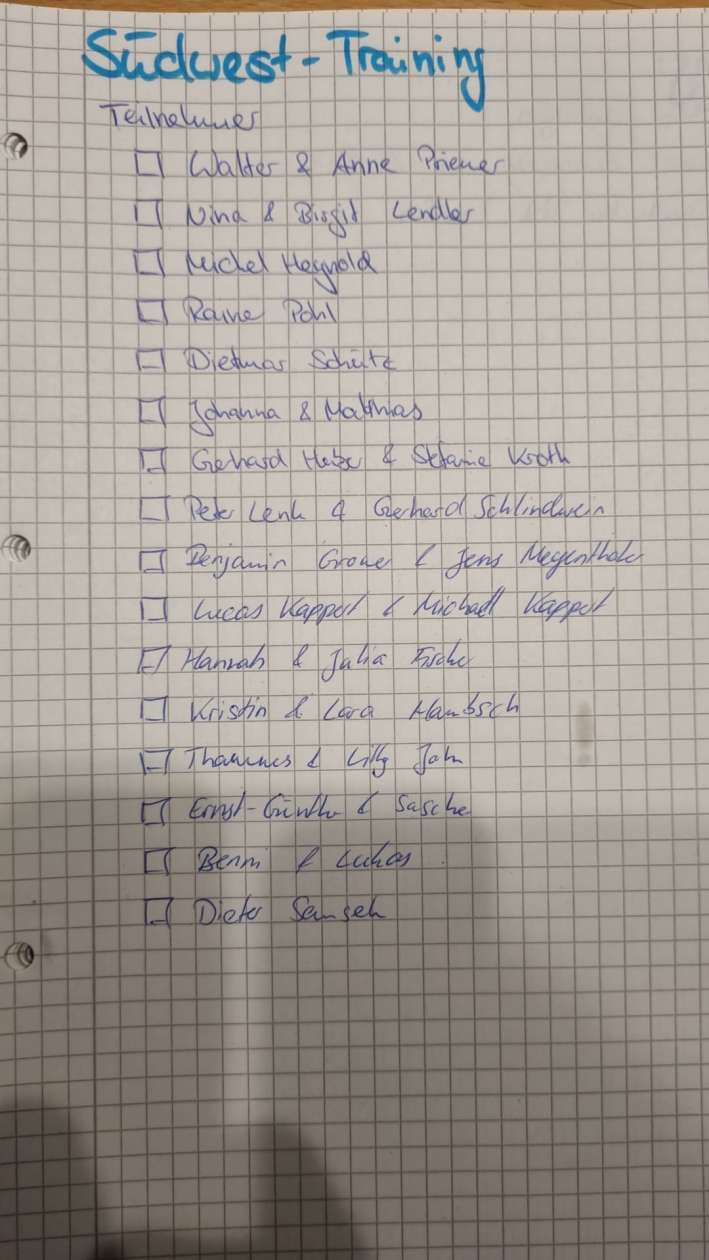 Südwest-Training
Teilnehmer
Walter & Anne Priemer
Nina & Birgit Lendler
Michel Heynold
Raine Pohl
Dietmar Schütz
Johanna & Matthias
Gerhard & Stefanie Kroth
Peter Lenk & Gerhard Schlindwein
Benjamin & Jens
Lucas Kappel & Michael Kappel
Hannah & Julia
Kristin & Lara Hambsch
& Lilly Jahn
Ernst-Günther & Sascha
Benni & Lukas
Dieter